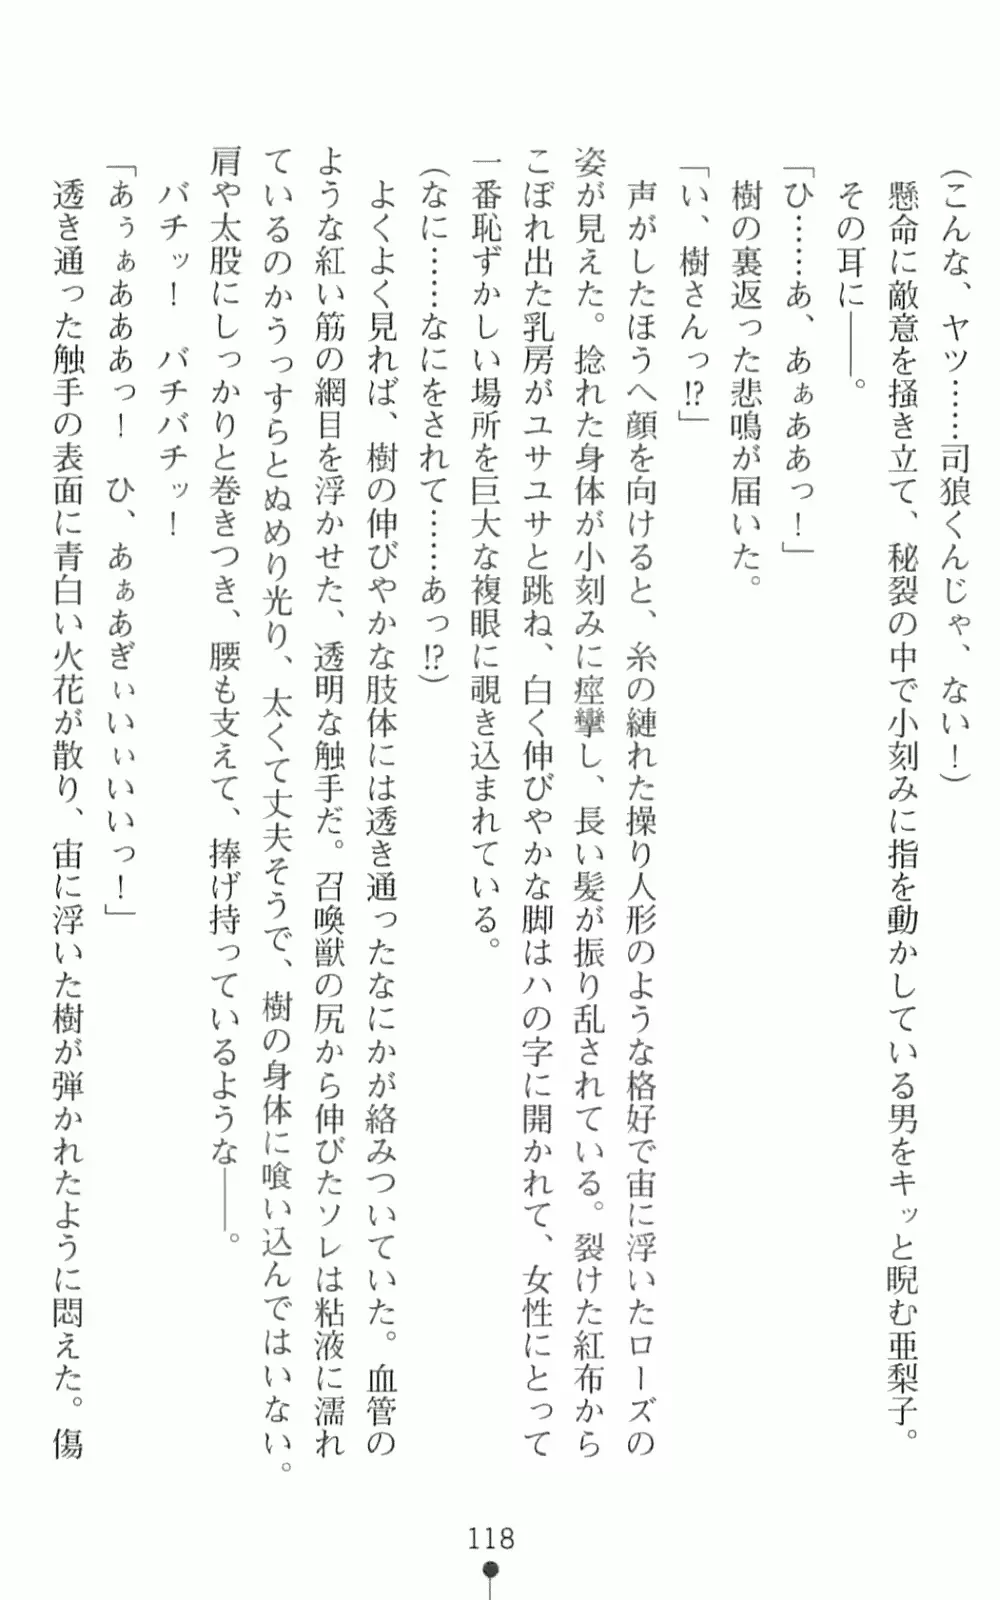 (こんな、ヤツ……司狼くんじゃ、ない！)
懸命に敵意を掻き立て、秘裂の中で小刻みに指を動かしている男をキッと睨む亜梨子。
その耳に――。
「ひ……あ、あぁああっ！」
樹の裏返った悲鳴が届いた。
「い、樹さんっ⁉」
声がしたほうへ顔を向けると、糸の縺れた操り人形のような格好で宙に浮いたローズの
姿が見えた。捻れた身体が小刻みに痙攣し、長い髪が振り乱されている。裂けた紅布から
こぼれ出た乳房がユサユサと跳ね、白く伸びやかな脚はハの字に開かれて、女性にとって
一番恥ずかしい場所を巨大な複眼に覗き込まれている。
(なに……なにをされて……あっ⁉)
よくよく見れば、樹の伸びやかな肢体には透き通ったなにかが絡みついていた。血管の
ような紅い筋の網目を浮かせた、透明な触手だ。召喚獣の尻から伸びたソレは粘液に濡れ
ているのかうっすらとぬめり光り、太くて丈夫そうで、樹の身体に喰い込んではいない。
肩や太股にしっかりと巻きつき、腰も支えて、捧げ持っているような――。
バチッ！　バチバチッ！
「あぅぁあああっ！　ひ、あぁあぎぃいぃいいっ！」
透き通った触手の表面に青白い火花が散り、宙に浮いた樹が弾かれたように悶えた。傷
118